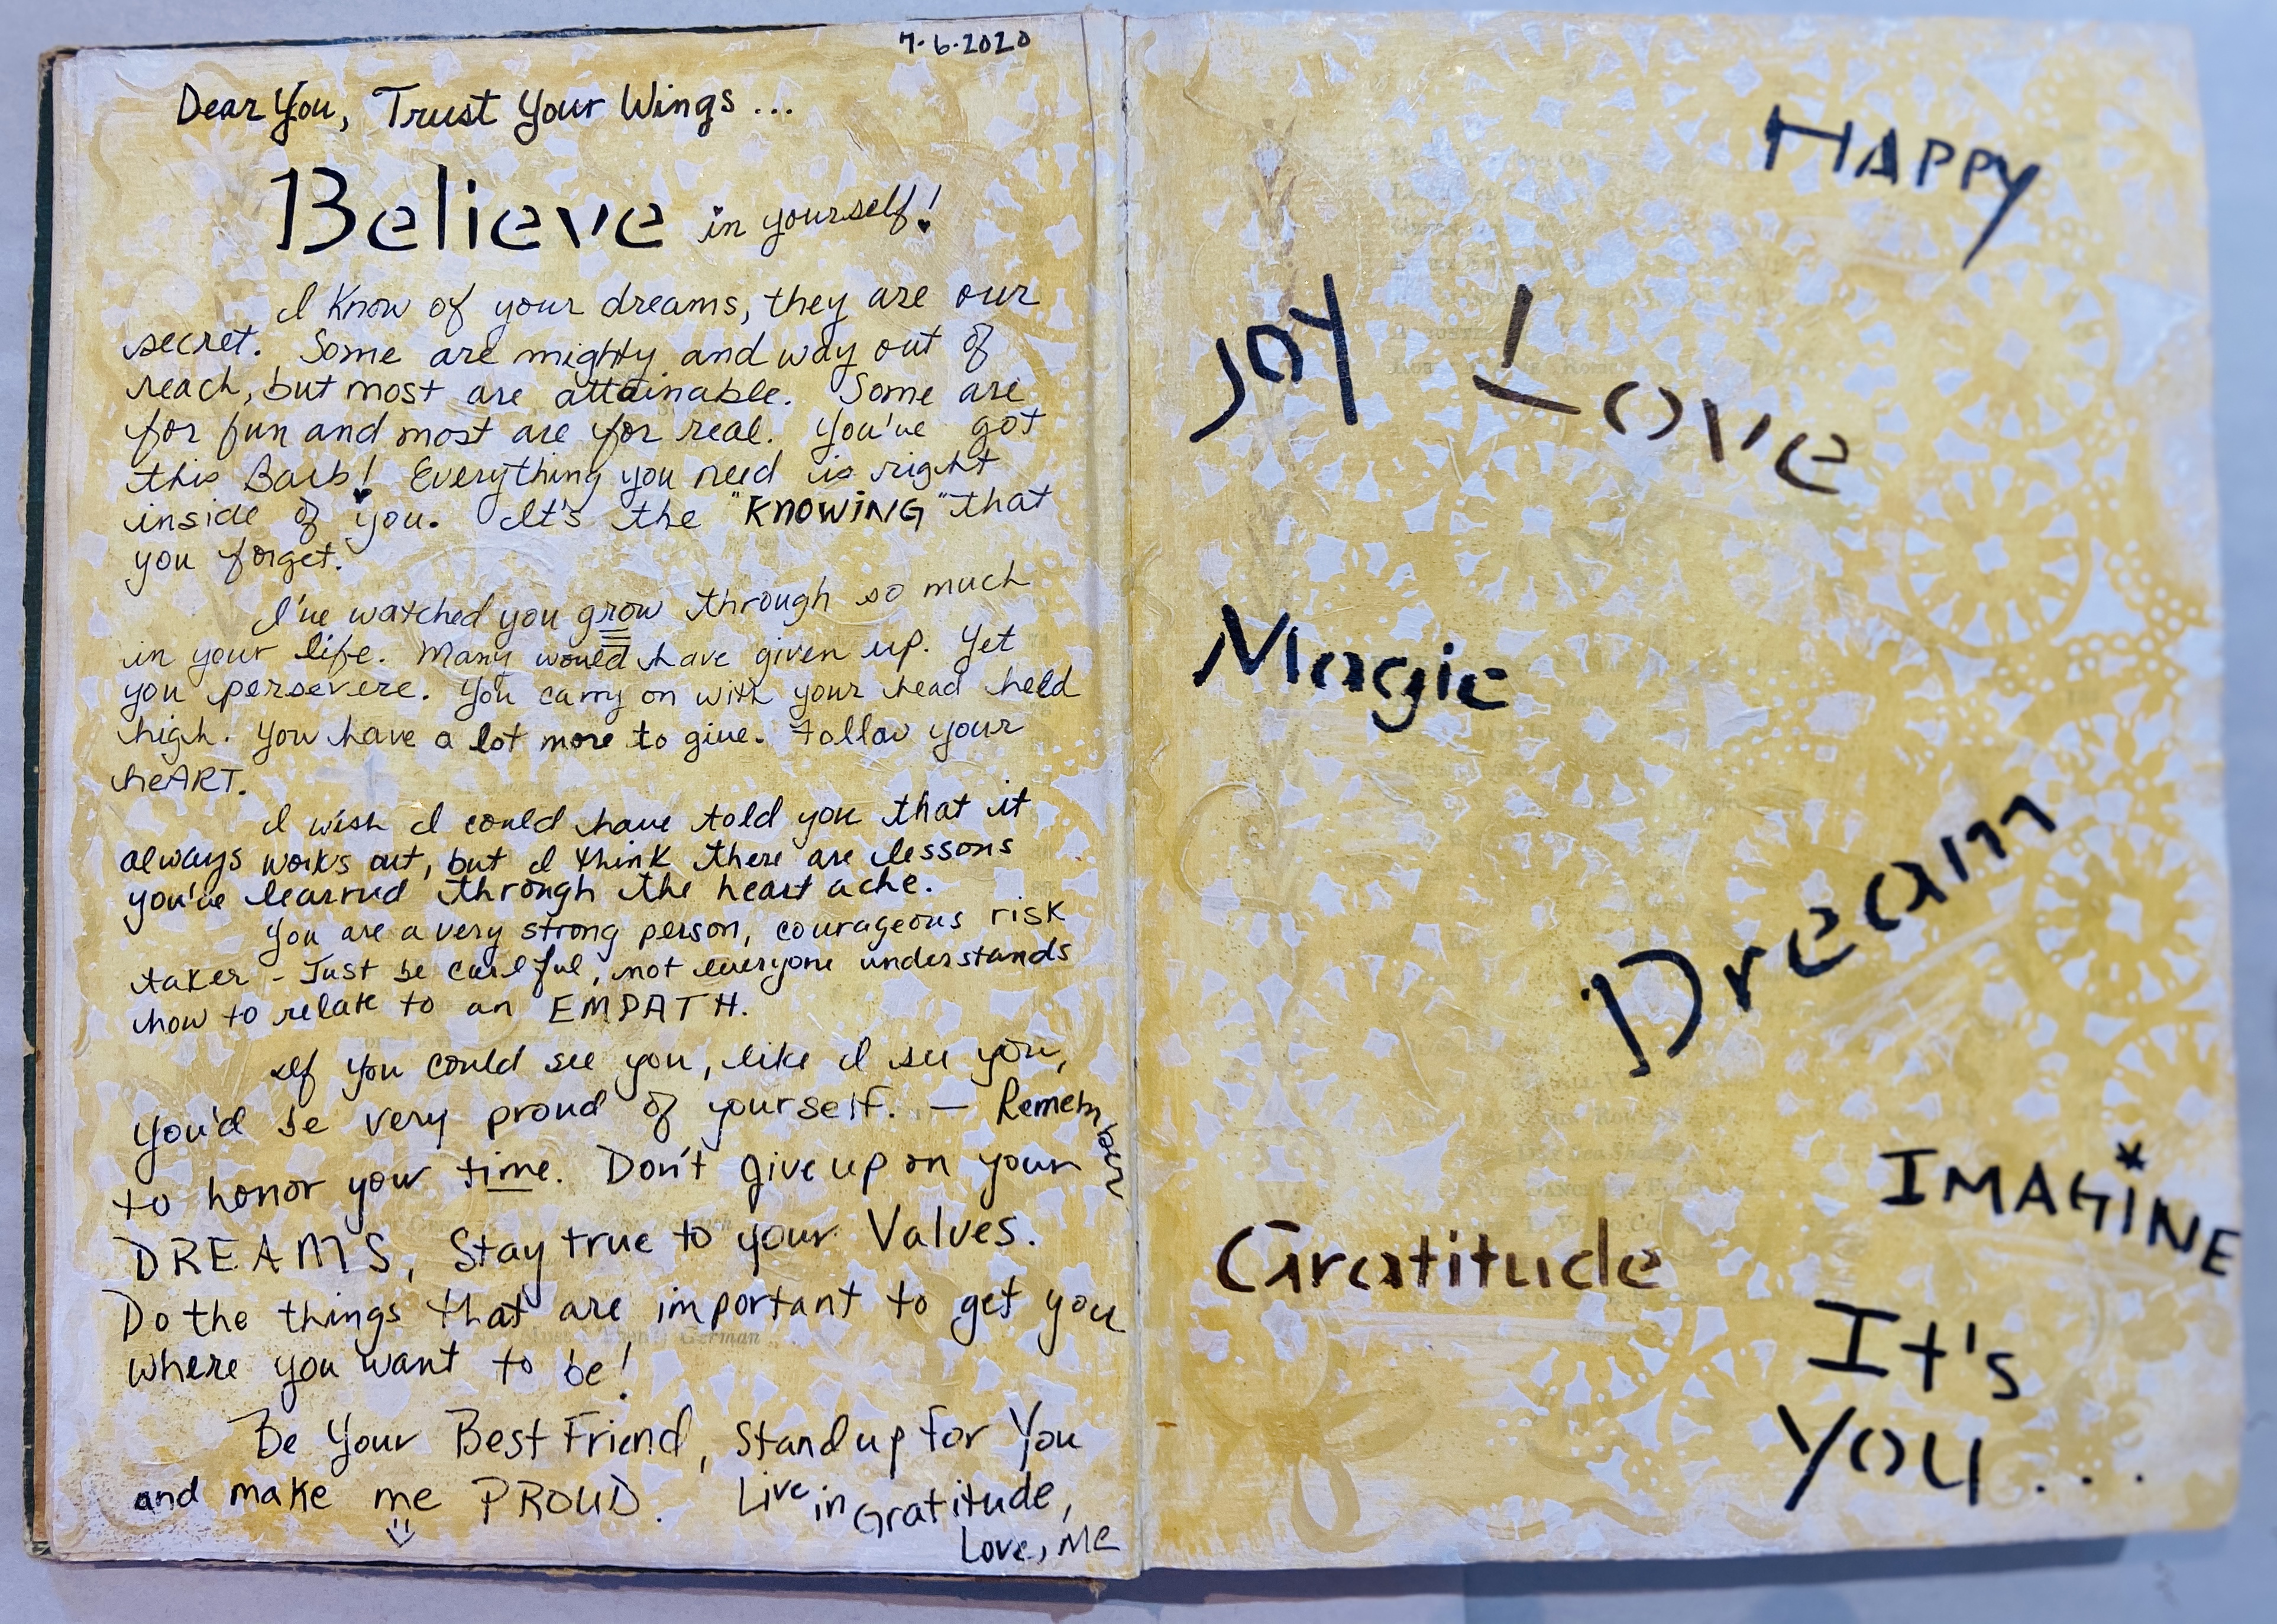 7-6-2020
Dear You, Trust Your Wings ...
Believe in yourself!
I Know of your dreams, they are our
secret. Some are mighty and way out of
reach, but most are attainable. Some are
for fun and most are for real. You've got
this Barb! Everything you need is right
inside of you. It's the "KNOWING" that
you forget.
I've watched you grow through so much
in your life. Many would have given up. Yet
you persevere. You carry on with your head held
high. You have a lot more to give. Follow your
heART.
I wish I could have told you that it
always works out, but I think there are lessons
you've learned through the heart ache.
You are a very strong person, courageous risk
taker - Just be careful, not everyone understands
how to relate to an EMPATH.
If you could see you, like I see you,
you'd be very proud of yourself. — Remember
to honor your time. Don't give up on your
DREAMS, Stay true to your Values.
Do the things that are important to get you
where you want to be!
Be Your Best Friend, Stand up for You
and make me PROUD. Live in Gratitude,
Love, Me
HAPPY
JOY Love
Magic
Dream
IMAGINE
Gratitude
It's
You...